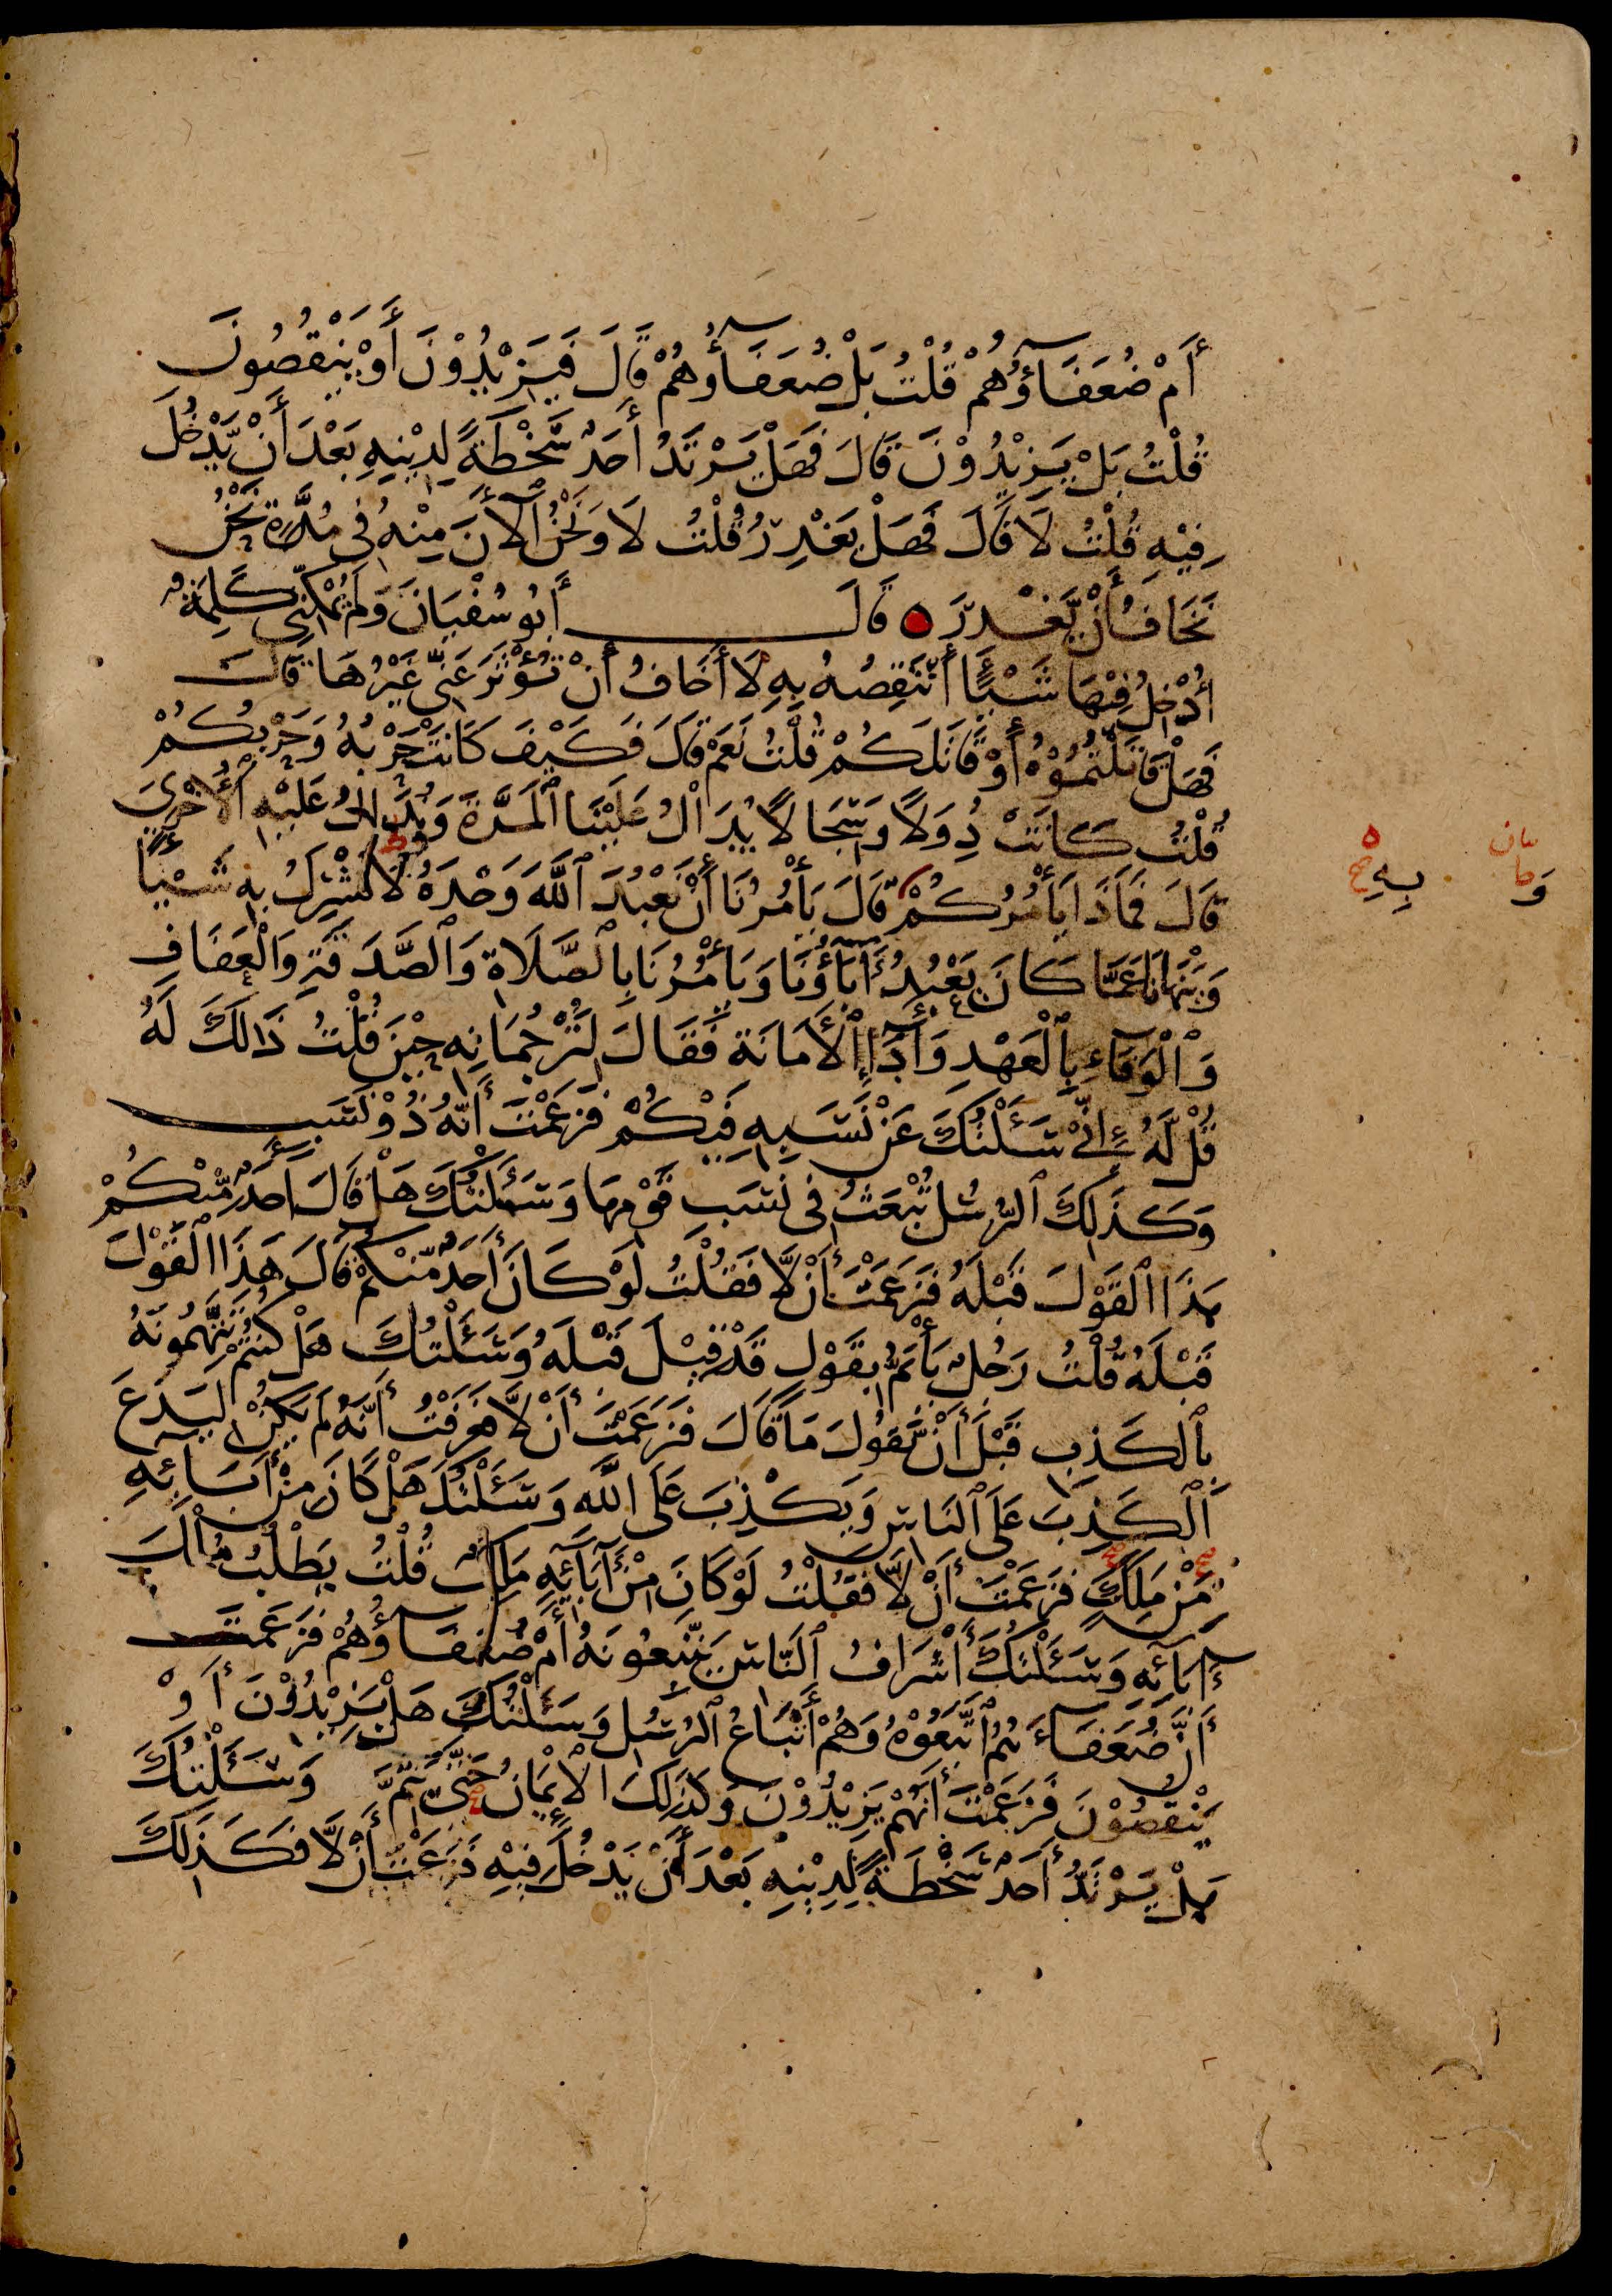 أَمْ ضُعَفَآؤُهُمْ قُلْتُ بَلْ ضُعَفَآؤُهُمْ قَالَ فَيَزِيْدُوْنَ أَوْ يَنْقُصُونَ
قُلْتُ بَلْ يَزِيْدُوْنَ قَالَ فَهَلْ يَرْتَدُّ أَحَدٌ سَّخْطَةً لِدِيْنِهِ بَعْدَ أَنْ يَّدْخُلَ
فِيْهِ قُلْتُ لَا قَالَ فَهَلْ يَغْدِرُ قُلْتُ لَا وَنَحْنُ ٱلْأَنَ مِنْهُ فِى مُدَّةٍ نَحْنُ
نَخَافُ أَنْ يَّغْدِرَ ه قَالَ أَبُو سُفْيَانَ وَلَمْ يُمْكِنِّى كَلِمَةٌ
أُدْخِلُ فِيْهَا شَيْئًا أَنْتَقِصُهُ بِهِ لَا أَخَافُ أَنْ تُؤْثَرَ عَنِّى غَيْرُهَا قَالَ
فَهَلْ قَاتَلْتُمُوْهُ أَوْ قَاتَلَكُمْ قُلْتُ نَعَمْ قَالَ فَكَيْفَ كَانَتْ حَرْبُهُ وَحَرْبُكُمْ
قُلْتُ كَانَتْ دِوَلًا وَسِجَالًا يُدَالُ عَلَيْنَا ٱلْمَرَّةَ وَيُدَالُ عَلَيْهِ ٱلْأُخْرَىٰ
قَالَ فَمَاذَا يَأْمُرُكُمْ قَالَ يَأْمُرُنَا أَنْ نَعْبُدَ ٱللَّهَ وَحْدَهُ لَا نُشْرِكُ بِهِ شَيْئًا
وَيَنْهَانَا عَمَّا كَانَ يَعْبُدُ آبَآؤُنَا وَيَأْمُرُنَا بِالصَّلَاةِ وَٱلصَّدَقَةِ وَالْعَفَافِ
وَٱلْوَفَآءِ بِٱلْعَهْدِ وَأَدَآءِ ٱلْأَمَانَةِ فَقَالَ لِتَرْجُمَانِهِ حِيْنَ قُلْتُ ذَالِكَ لَهُ
قُلْ لَّهُ إِنِّىْ سَئَلْتُكَ عَنْ نَسَبِهِ فِيْكُمْ فَزَعَمْتَ أَنَّهُ ذُوْ نَسَبٍ
وَكَذَلِكَ ٱلرُّسُلُ تُبْعَثُ فِى نَسَبِ قَوْمِهَا وَسَئَلْتُكَ هَلْ قَالَ أَحَدٌ مِّنْكُمْ
هَذَا ٱلْقَوْلَ قَبْلَهُ فَزَعَمْتَ أَنْ لَّا فَقُلْتُ لَوْ كَانَ أَحَدٌ مِّنْكُمْ قَالَ هَذَا ٱلْقَوْلَ
قَبْلَهُ قُلْتُ رَجُلٌ يَأْتَمُّ بِقَوْلٍ قَدْ قِيْلَ قَبْلَهُ وَسَئَلْتُكَ هَلْ كُنْتُمْ تَتَّهِمُونَهُ
بِٱلْكَذِبِ قَبْلَ أَنْ يَّقُولَ مَا قَالَ فَزَعَمْتَ أَنْ لَّا فَعَرَفْتُ أَنَّهُ لَمْ يَكُنْ لِيَدَعَ
ٱلْكَذِبَ عَلَى ٱلنَّاسِ وَيَكْذِبَ عَلَى اللَّهِ وَسَئَلْتُكَ هَلْ كَانَ مِنْ أَبَائِهِ
مَنْ مَلَكَ فَزَعَمْتَ أَنْ لَّا فَقُلْتُ لَوْ كَانَ مِنْ آبَآئِهِ مَلِكٌ قُلْتُ يَطْلُبُ مُلْكَ
ءَابَآئِهِ وَسَئَلْتُكَ أَشْرَافُ ٱلنَّاسِ يَتَّبِعُونَهُ أَمْ ضُعَفَآؤُهُمْ فَزَعَمْتَ
أَنَّ ضُعَفَآءَهُمُ ٱتَّبَعُوْهُ وَهُمْ أَتْبَاعُ ٱلرُّسُلِ وَسَئَلْتُكَ هَلْ يَزِيْدُوْنَ أَوْ
يَنْقُصُوْنَ فَزَعَمْتَ أَنَّهُمْ يَزِيْدُوْنَ وَكَذَلِكَ ٱلْإِيْمَانُ حَتَّى يَتِمَّ وَسَئَلْتُكَ
هَلْ يَرْتَدُّ أَحَدٌ سَّخْطَةً لِدِيْنِهِ بَعْدَ أَنْ يَدْخُلَ فِيْهِ فَزَعَمْتَ أَنْ لَّا فَكَذَلِكَ
بِهِ